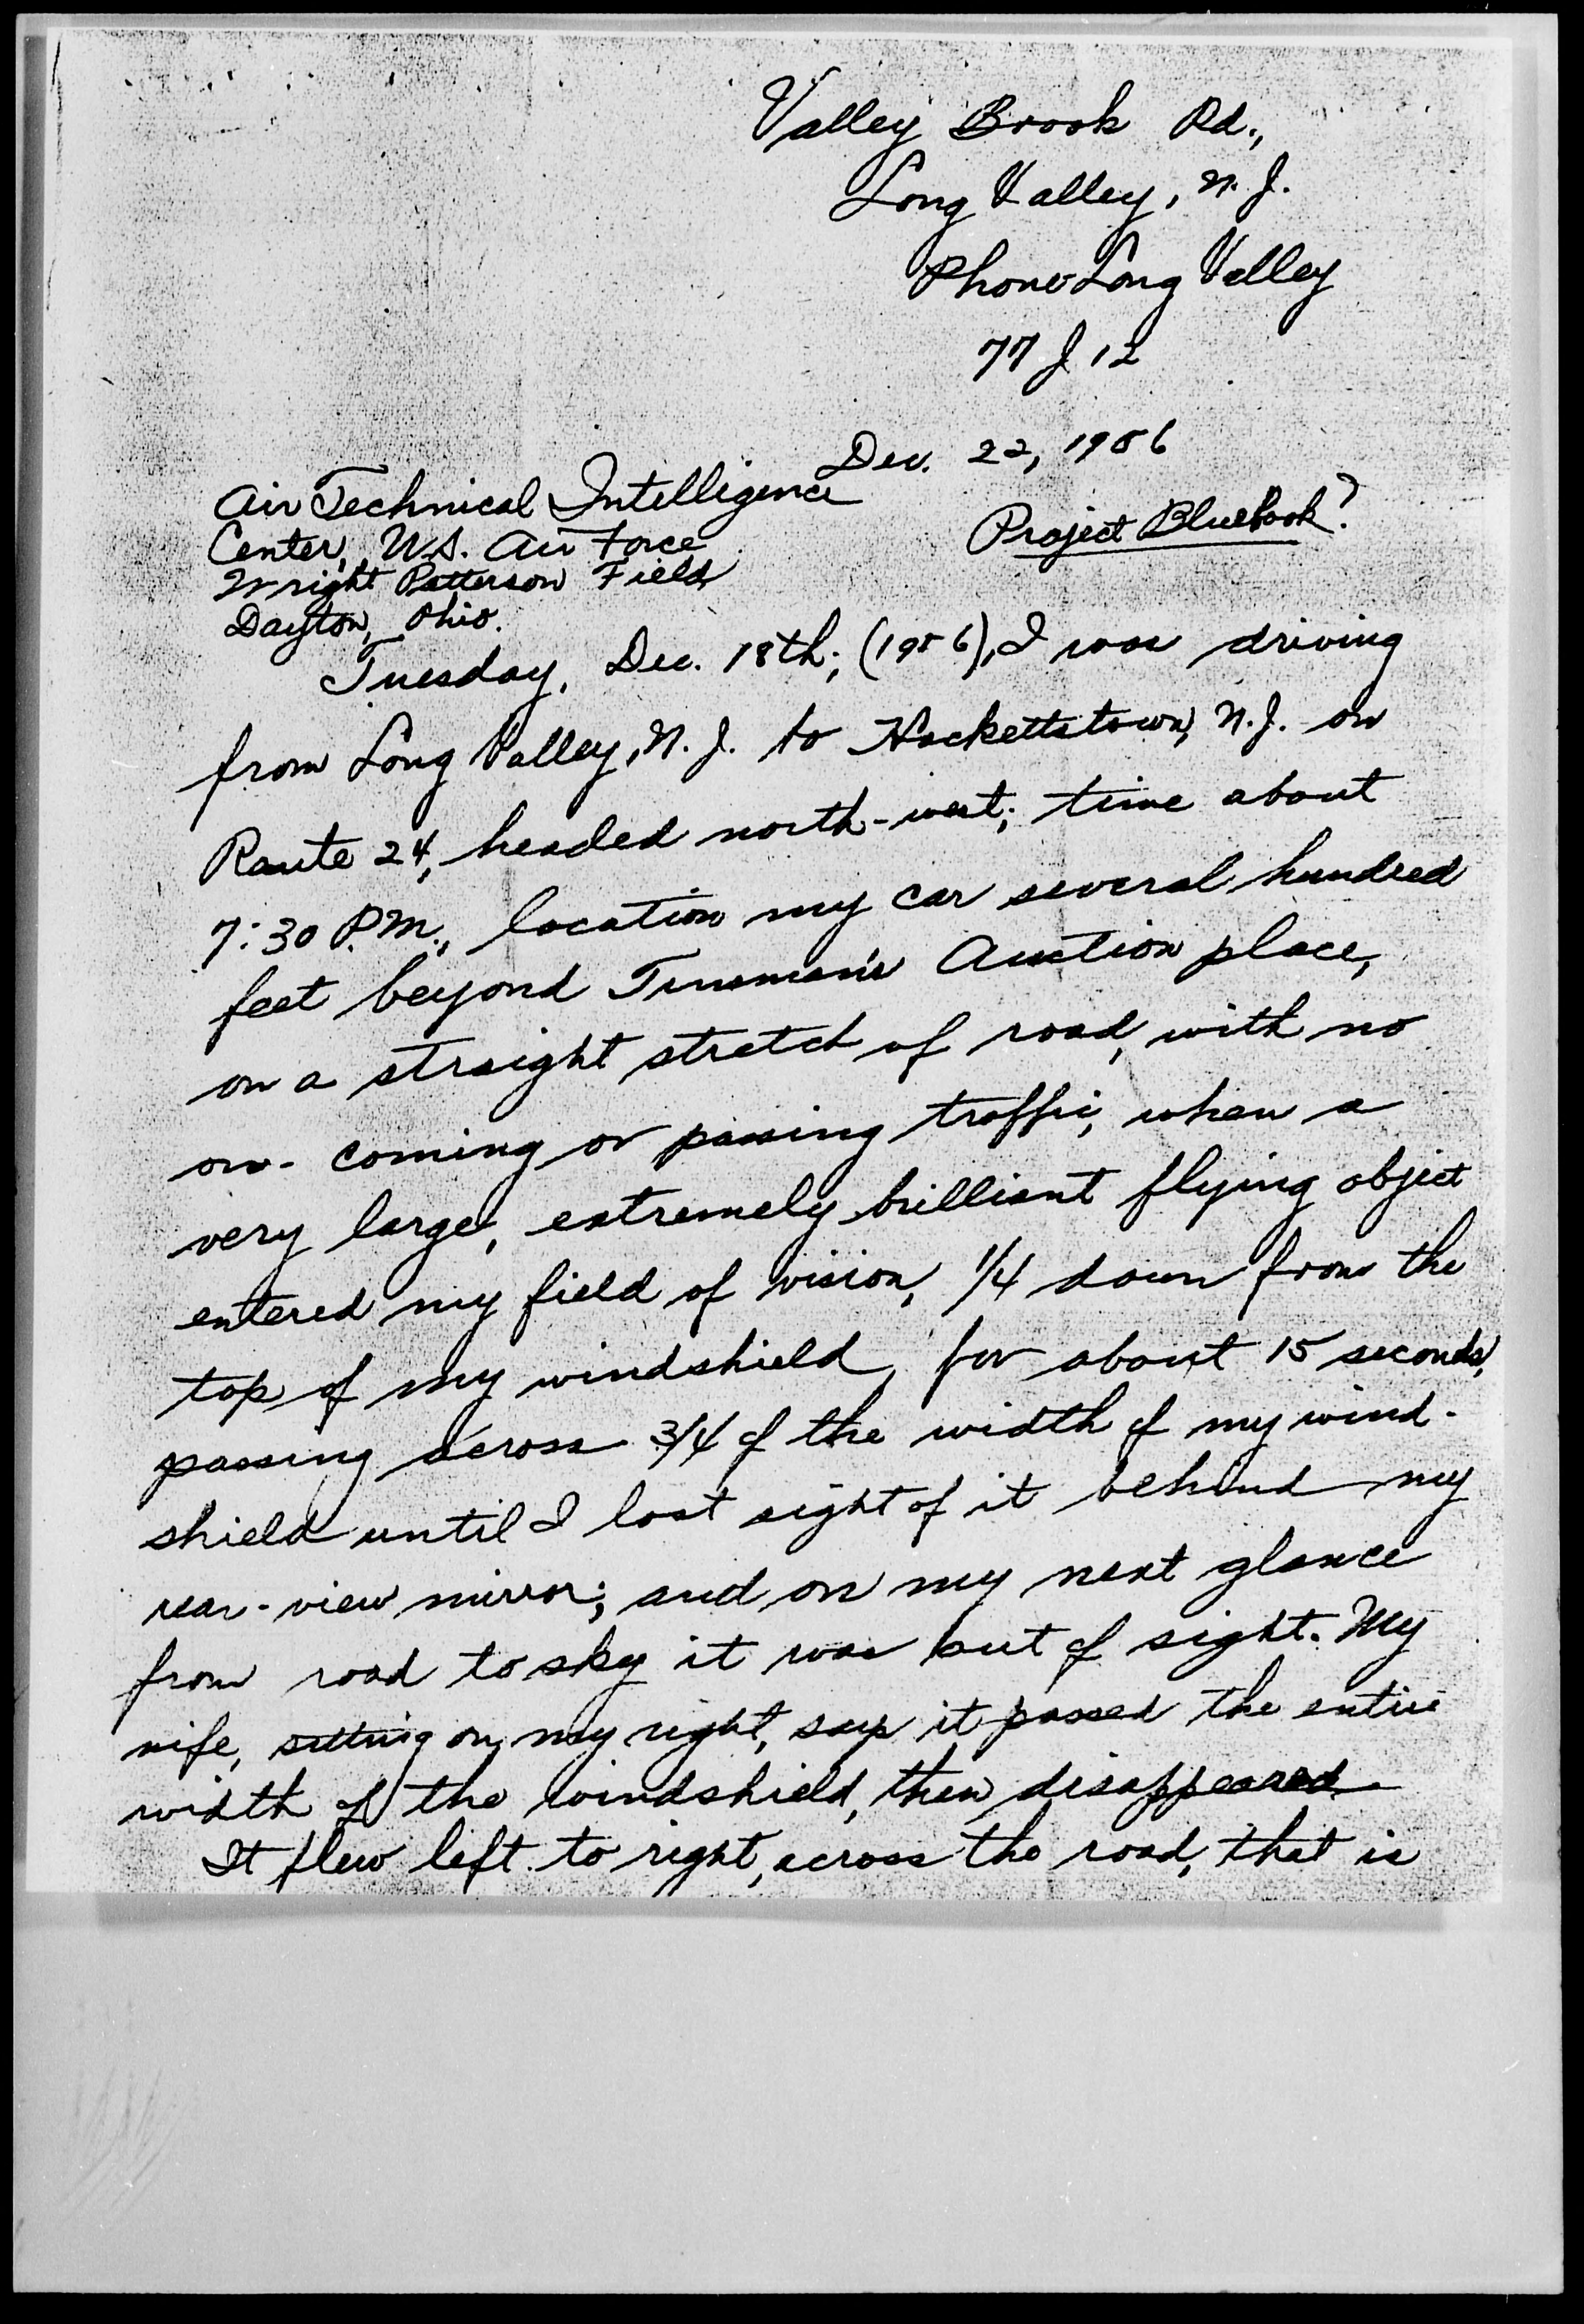 Valley Brook Rd.,
Long Valley, N.J.
Phone Long Valley
77 J 12
Dec. 22, 1956
Air Technical Intelligence
Center, U.S. Air Force
Project Bluebook?
Wright Patterson Field
Dayton, Ohio.
Tuesday, Dec. 18th, (1956), I was driving
from Long Valley, N.J. to Hackettstown, N.J. on
Route 24, headed north-west; time about
7:30 P.M., location my car several hundred
feet beyond Auction place,
on a straight stretch of road, with no
on-coming or passing traffic, when a
very large, extremely brilliant flying object
entered my field of vision, 1/4 down from the
top of my windshield, for about 15 seconds,
passing across 3/4 of the width of my wind-
shield until I lost sight of it behind my
rear-view mirror; and on my next glance
from road to sky it was out of sight. My
wife, sitting on my right, says it passed the entire
width of the windshield, then disappeared.
It flew left to right, across the road, that is